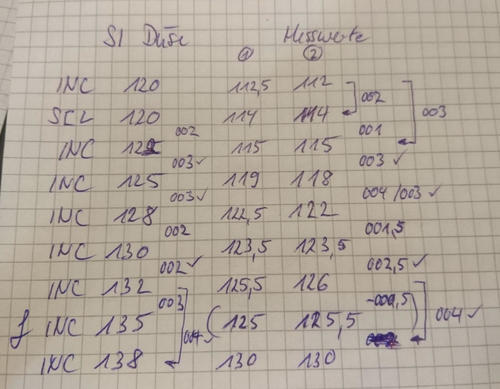 SI Düse Messwerte
① ②
INC 120 112,5 112
002 003
SCL 120 114 114
002 001
INC 122 115 115
003 ✓ 003 ✓
INC 125 119 118
003 ✓ 004/003 ✓
INC 128 122,5 122
002 001,5
INC 130 123,5 123,5
002 ✓ 002,5 ✓
INC 132 125,5 126
003 -000,5 004 ✓
INC 135 (125 125,5)
004 ✓
INC 138 130 130